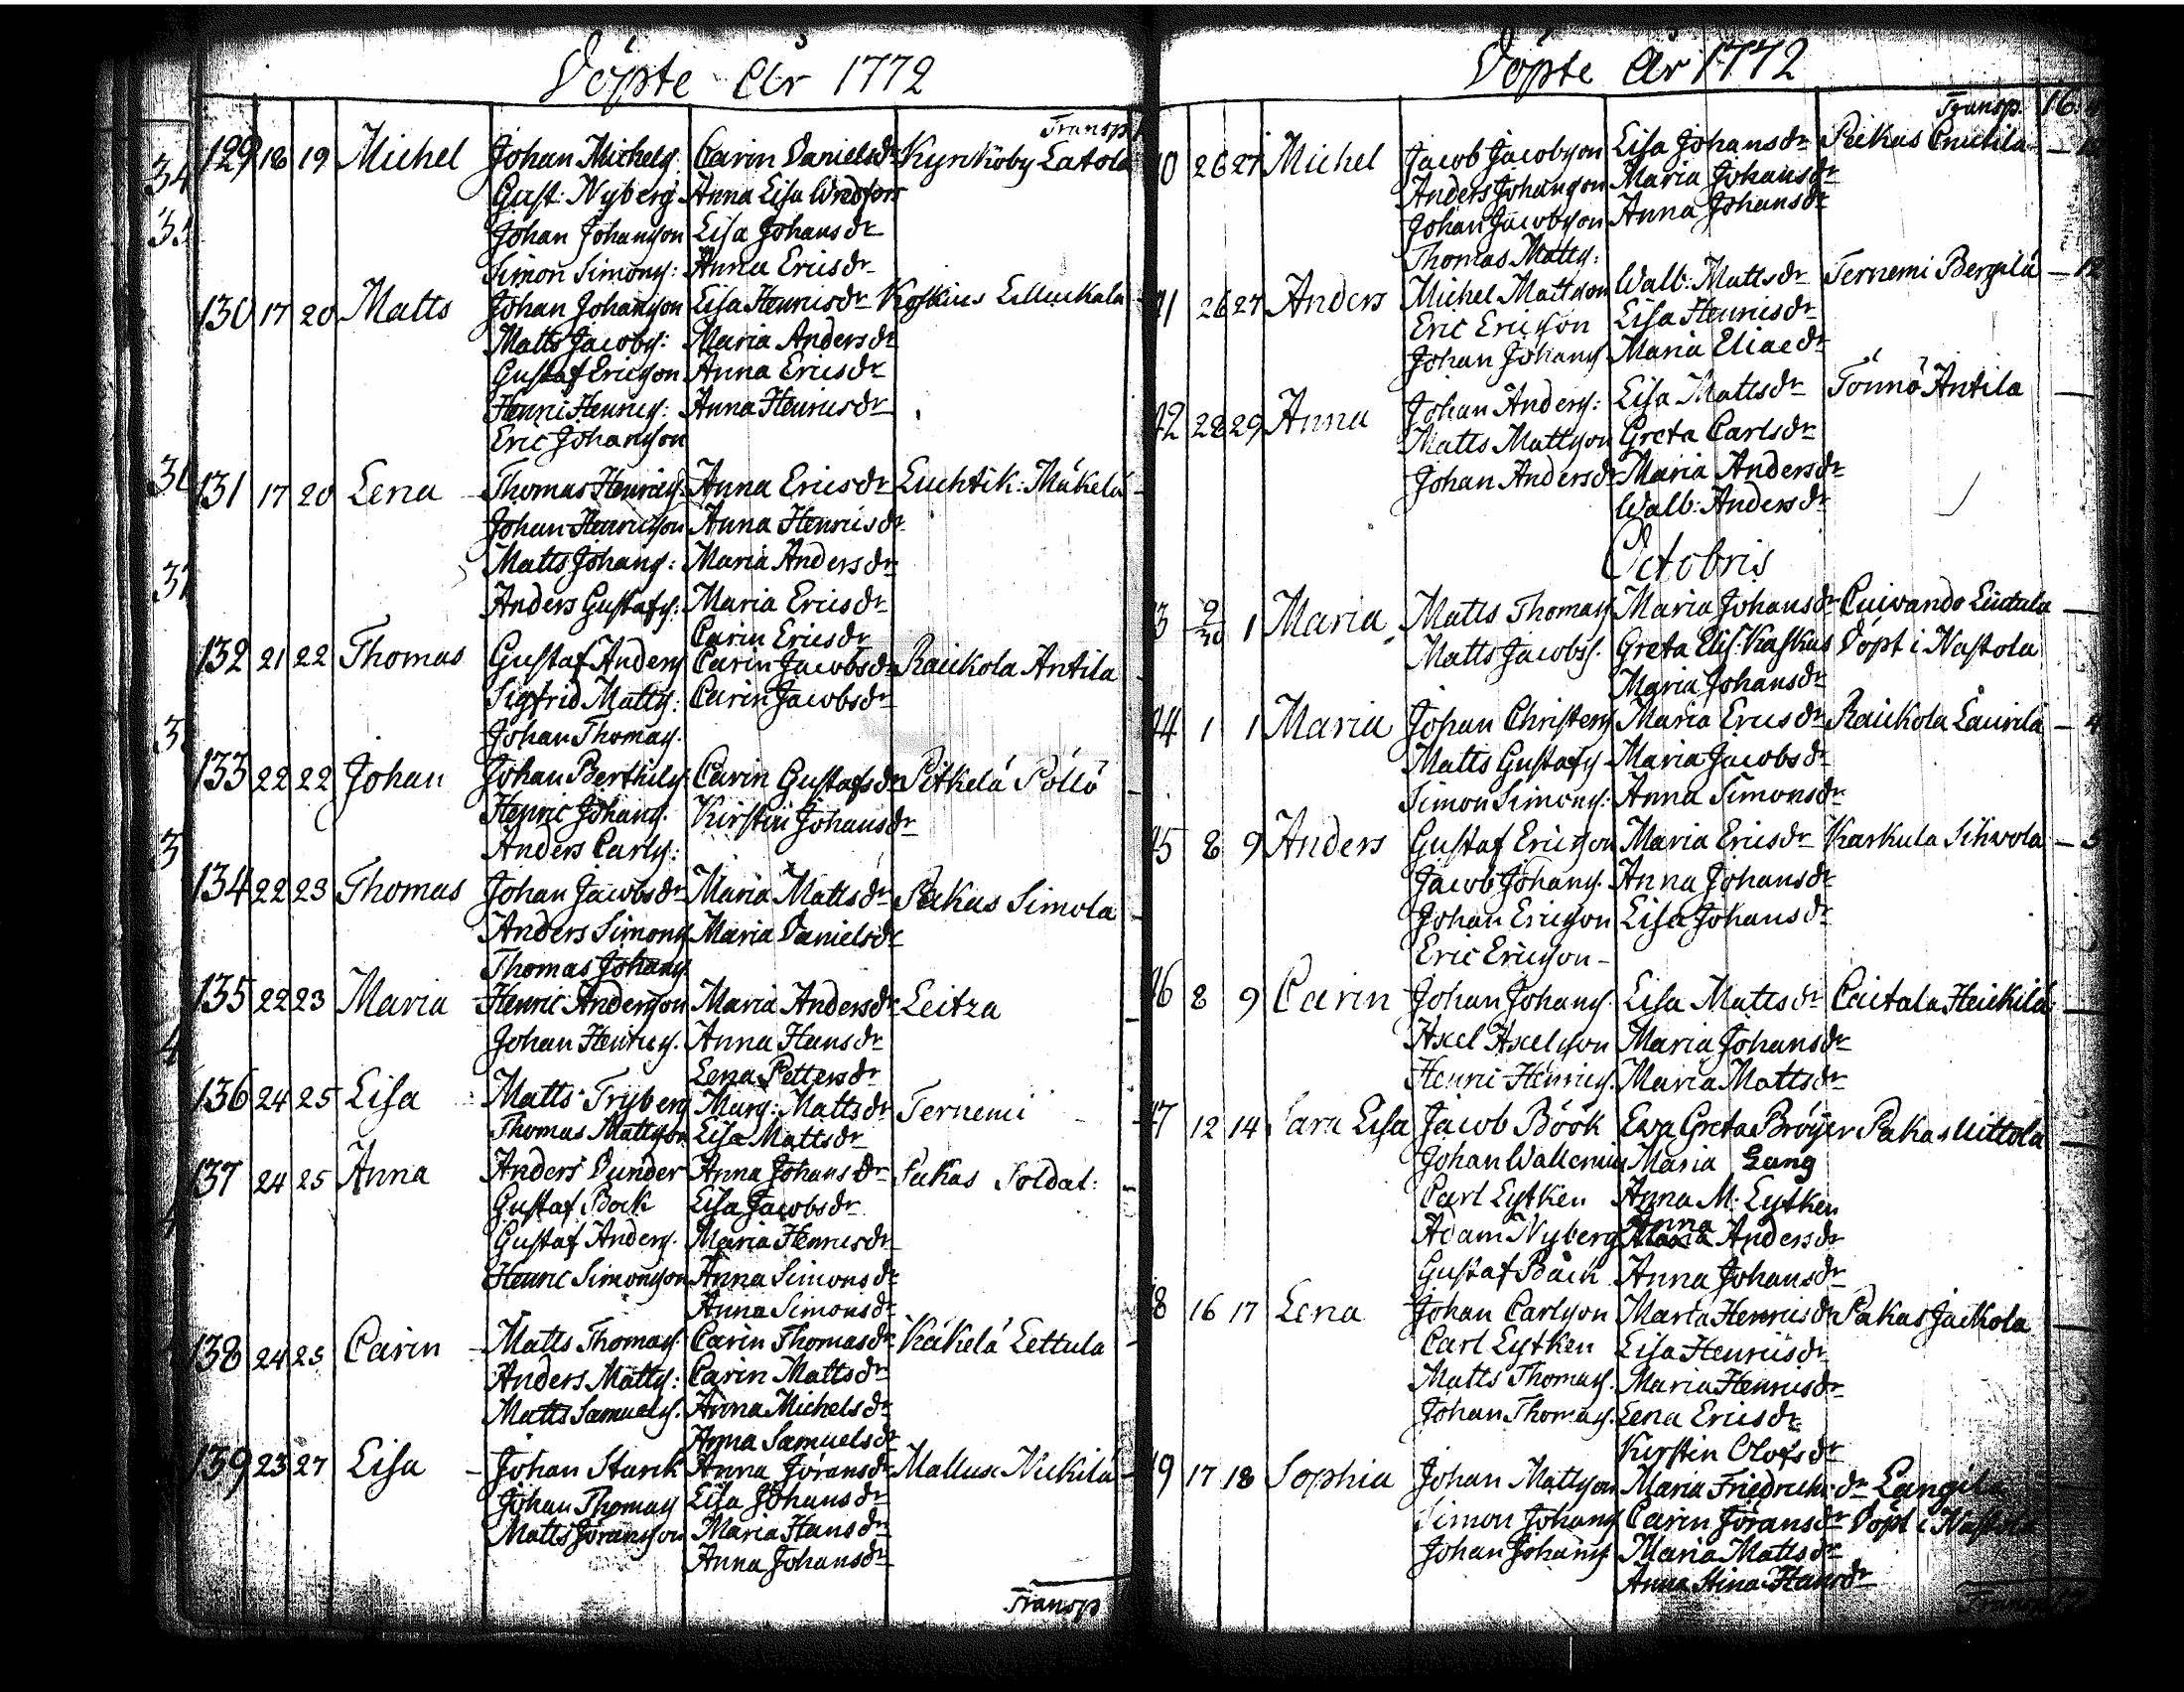 Döpte År 1772
Transp
129 18 19 Michel Johan Michels: Carin Danielsdr Kyrkoby Latola
Gust: Nyberg Anna Lisa
Johan Johansson Lisa Johansdr
Simon Simons: Anna Ericsdr
130 17 20 Matts Johan Johansson Lisa Henricsdr Koskius
Matts Jacobs: Maria Andersdr
Gustaf Ericsson Anna Ericsdr
Henric Henrics: Anna Henricsdr
Eric Johansson
131 17 20 Lena Thomas Henrics: Anna Ericsdr Luhtik: Mäkelä
Johan Henricsson Anna Henricsdr
Matts Johans: Maria Andersdr
Anders Gustafs: Maria Ericsdr
Carin Ericsdr
132 21 22 Thomas Gustaf Anders Carin Jacobsdr Raickola Antila
Sigfrid Matts: Carin Jacobsdr
Johan Thomas.
133 22 22 Johan Johan Berthils. Carin Gustafsdr Pitkelä Pöllö
Henric Johans. Kirstin Johansdr
Anders Carls:
134 22 23 Thomas Johan Jacobsdr Maria Mattsdr Pakas Simola
Anders Simons Maria Danielsdr
Thomas Johans
135 22 23 Maria Henric Andersson Maria Andersdr Leitza
Johan Henrics. Anna Hansdr
Lena Pettersdr
136 24 25 Lisa Matts Tryberg Marg: Mattsdr Ternemi
Thomas Mattsson Lisa Mattsdr
137 24 25 Anna Anders Dunder Anna Johansdr Pakas Soldat:
Gustaf Bock Lisa Jacobsdr
Gustaf Anders. Maria Henricsdr
Henric Simonsson Anna Simonsdr
Anna Simonsdr
138 24 25 Carin Matts Thomas. Carin Thomasdr Käkelä Lettula
Anders Matts: Carin Mattsdr
Matts Samuels. Anna Michelsdr
Anna Samuelsdr
139 23 27 Lisa Johan Starck Anna Göransdr Mallus Nickilä
Johan Thomas Lisa Johansdr
Matts Göransson Maria Hansdr
Anna Johansdr
Transp
Döpte År 1772
Transp. 16
40 26 27 Michel Jacob Jacobsson Lisa Johansdr Pakas Cnutila
Anders Johansson Maria Johansdr
Johan Jacobsson Anna Johansdr
Thomas Matts:
41 26 27 Anders Michel Mattsson Walb: Mattsdr Ternemi Bergilä 12
Eric Ericsson Lisa Henricsdr
Johan Johans Maria Eliaedr
42 28 29 Anna Johan Anders: Lisa Mattsdr Tönnö Antila
Matts Mattsson Greta Carlsdr
Johan Andersdr Maria Andersdr
Walb: Andersdr
Octobris
3 9/30 1 Maria Matts Thomas Maria Johansdr Cuivando
Matts Jacobs. Greta Elis: Kaskus Döpt i Nastola
Maria Johansdr
44 1 1 Maria Johan Christers Maria Ericsdr Raickola Laurila 4
Matts Gustafs Maria Jacobsdr
Simon Simons: Anna Simonsdr
45 8 9 Anders Gustaf Ericsson Maria Ericsdr Karkula Sihvola
Jacob Johans. Anna Johansdr
Johan Ericsson Lisa Johansdr
Eric Ericsson
46 8 9 Carin Johan Johans. Lisa Mattsdr Caitala Heickilä
Axel Axelsson Maria Johansdr
Henric Henrics. Maria Mattsdr
47 12 14 Sara Lisa Jacob Böök Ewa Greta Bröijer Pakas Uittola
Johan Wallenius Maria Lang
Carl Lytken Anna M: Lytken
Adam Nyberg Anna Andersdr
Gustaf Bäck Anna Johansdr
8 16 17 Lena Johan Carlsson Marta Henricsdr Pakas Jackola
Carl Lytken Lisa Henricsdr
Matts Thomas. Maria Henricsdr
Johan Thomas. Lena Ericsdr
Kirstin Olofsdr
49 17 18 Sophia Johan Mattsson Maria Friedrichsdr Langila
Simon Johans Carin Göransdr Döpt i Nastola
Johan Johans Maria Mattsdr
Anna Stina Hansdr
Transp